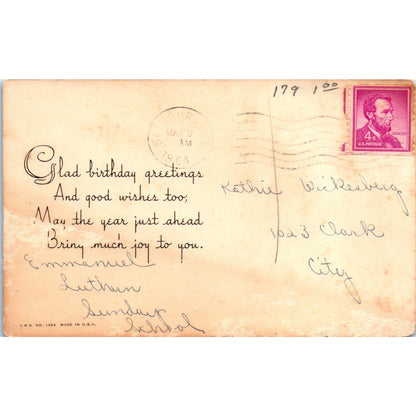 179 1.00
MAY 9
AM
4¢
U.S. POSTAGE
Glad birthday greetings
And good wishes too;
May the year just ahead
Bring much joy to you.
Kathie Wickesberg
1023 Clark
City
Emmanuel
Luthern
Sunday
School
C.W.D. NO. 1354 MADE IN U.S.A.